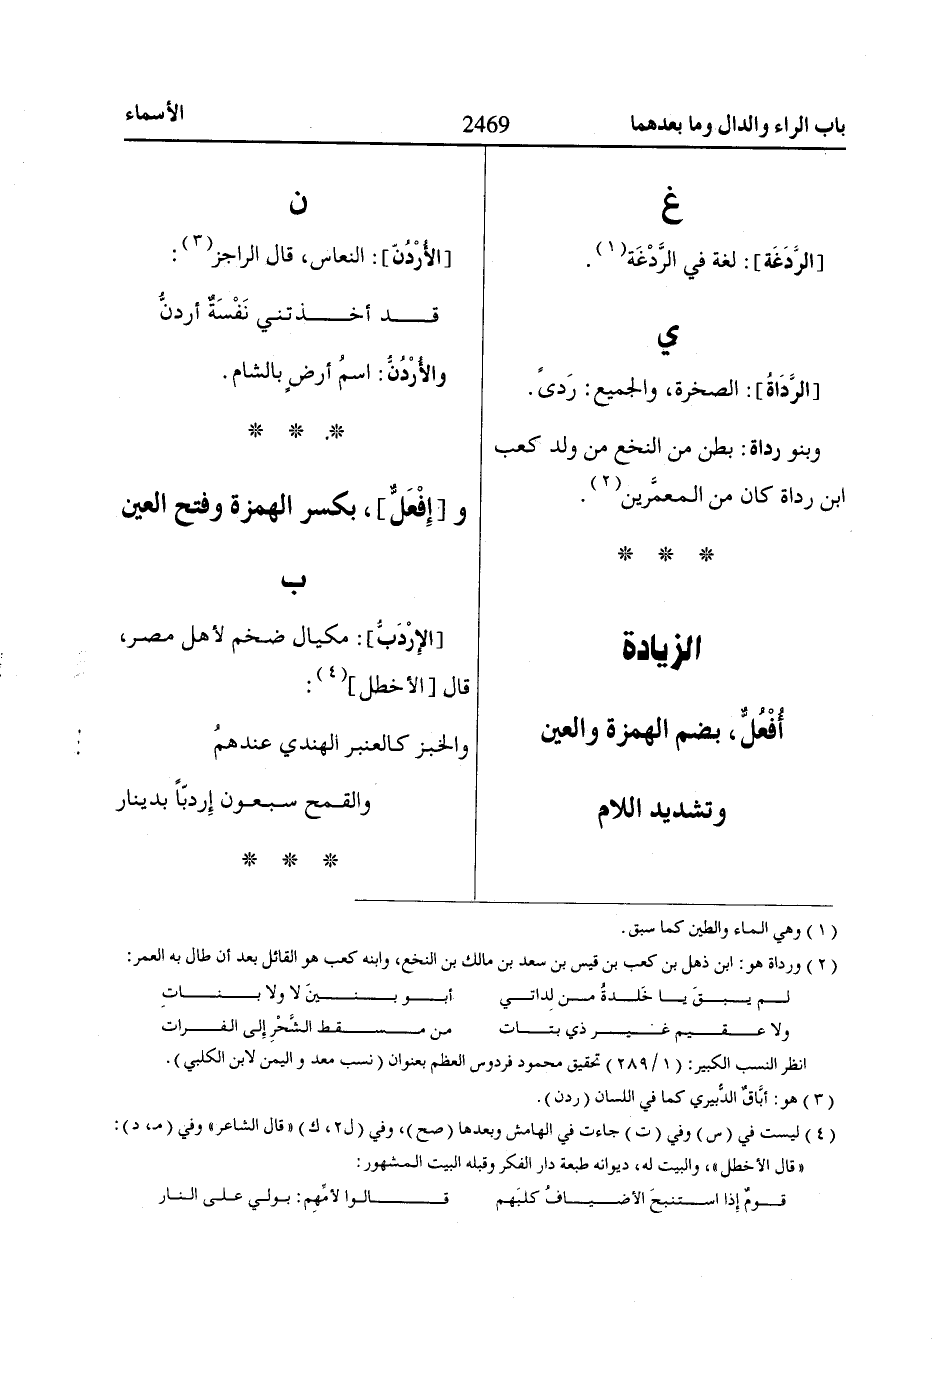 باب الراء والدال وما بعدهما 2469 الأسماء
غ
[الرَّدَغَة]: لغة في الرَّدْغَة(١).
ي
[الرَّدَاةُ]: الصخرة، والجميع: رَدىً.
وبنو رداة: بطن من النخع من ولد كعب
ابن رداة كان من المعمَّرين(٢).
* * *
الزيادة
أُفْعُلٌّ، بضم الهمزة والعين
وتشديد اللام
ن
[الأُرْدُنّ]: النعاس، قال الراجز(٣):
قد أخذتني نَفْسَةٌ أردنُّ
والأُرْدُنُّ: اسمُ أرضٍ بالشام.
* * *
و [إِفْعَلٌّ]، بكسر الهمزة وفتح العين
ب
[الإِرْدَبُّ]: مكيال ضخم لأهل مصر،
قال [الأخطل](٤):
والخبز كالعنبر الهندي عندهمُ
والقمح سبعون إِردبّاً بدينار
* * *
(١) وهي الماء والطين كما سبق.
(٢) ورداة هو: ابن ذهل بن كعب بن قيس بن سعد بن مالك بن النخع، وابنه كعب هو القائل بعد أن طال به العمر:
لم يبقَ يا خَلدةُ من لِداتي أبو بنينَ لا ولا بناتِ
ولا عقيم غير ذي بتات من مسقط الشَّحْرِ إلى الفرات
انظر النسب الكبير: (١/٢٨٩) تحقيق محمود فردوس العظم بعنوان (نسب معد و اليمن لابن الكلبي).
(٣) هو: أبَّاقٌ الدُّبيري كما في اللسان (ردن).
(٤) ليست في (س) وفي (ت) جاءت في الهامش وبعدها (صح)، وفي (ل٢، ك) «قال الشاعر» وفي (م، د):
«قال الأخطل»، والبيت له، ديوانه طبعة دار الفكر وقبله البيت المشهور:
قومٌ إذا استنبحَ الأضيافُ كلبَهم قالوا لأمِّهم: بولي على النار